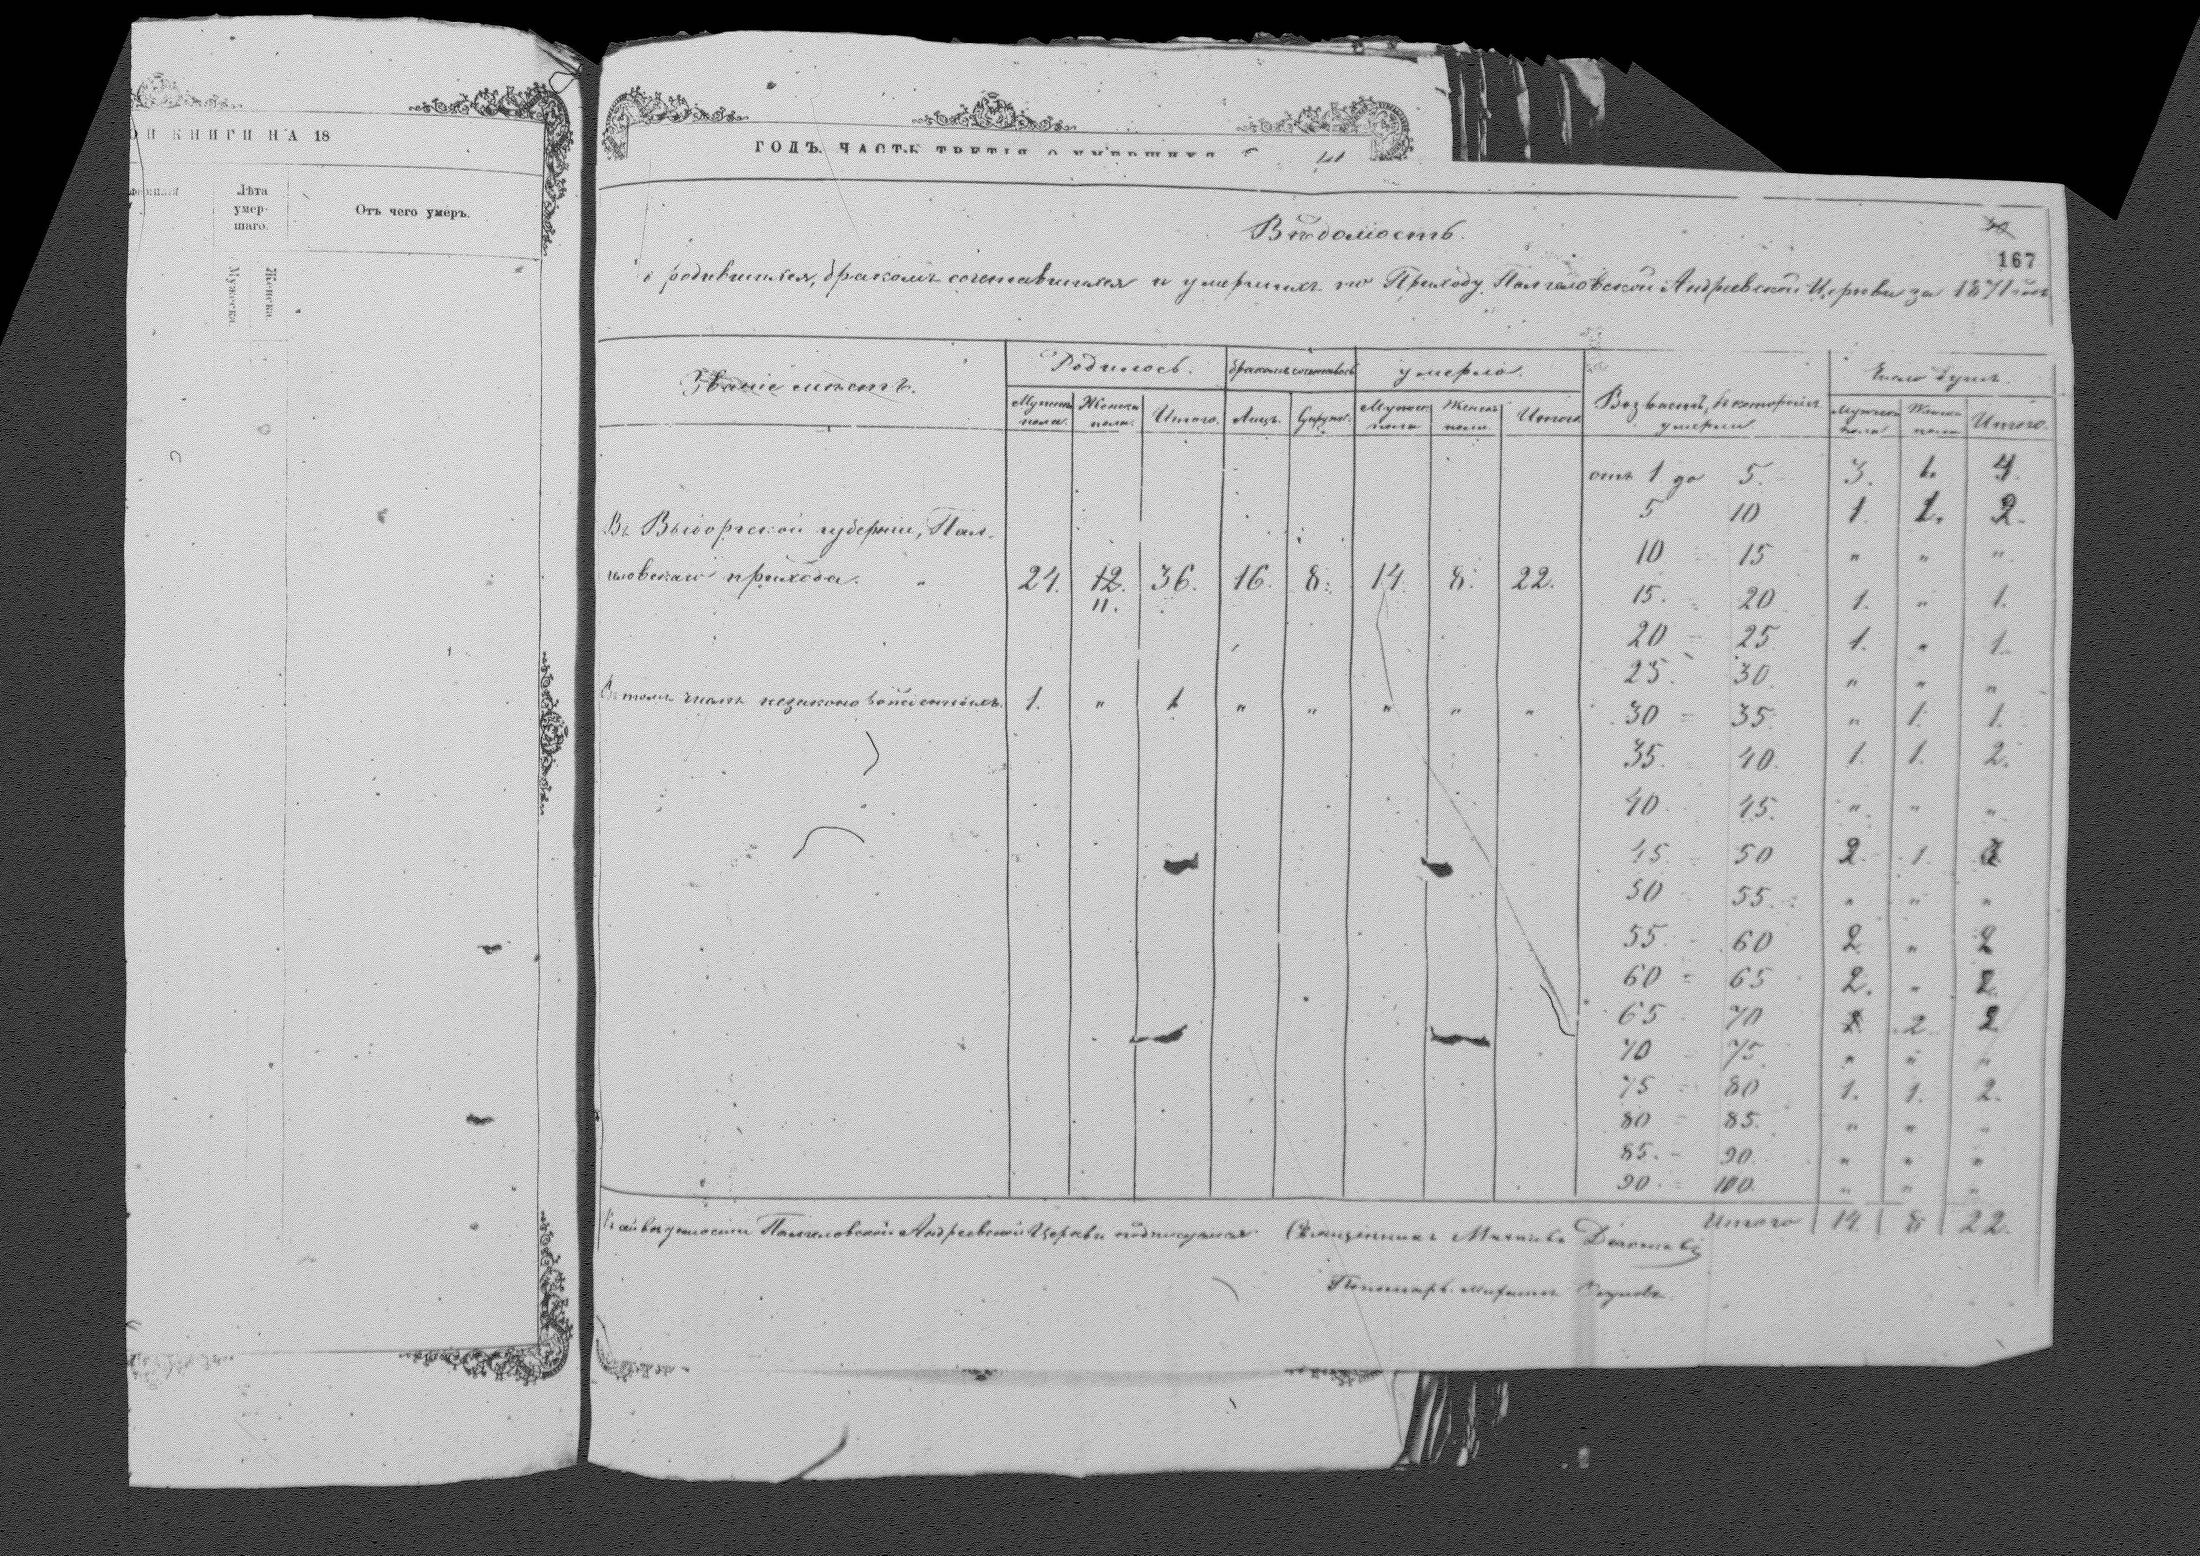 ОЙ КНИГИ НА 18
Лѣта умер-
шаго.
Отъ чего умеръ.
Мужеска
Женска
ГОДЪ, ЧАСТЬ ТРЕТІЯ О УМЕРШИХЪ
Вѣдомость.
167
о родившихся, бракомъ сочетавшихся и умершихъ по Приходу Палгеловской Андреевской Церкви за 1871 годъ
Званіе мѣстъ. Родилось. бракомъ сочеталось умерло. Возрастъ, въ которомъ умерли Число душъ.
Мужеска пола. Женска пола. Итого. Лицъ. Супруж. Мужеска пола Женска пола. Итого. Мужеска пола Женска пола Итого.
отъ 1 до 5. 3. 1. 4.
5 10 1. 1. 2.
Въ Выборгской губерніи, Пал-
10 15 " " "
геловскаго прихода. " 24. 12. 36. 16. 8. 14. 8. 22.
".
15. 20 1. " 1.
20 - 25 1. " 1.
25. 30. " " "
Въ томъ числѣ незаконорожденныхъ. 1. " 1 " " " " "
30 - 35. " 1. 1.
35. 40. 1. 1. 2.
40 45. " " "
45. - 50 2. 1. 3
50 - 55. " " "
55. - 60 2 " 2
60 - 65 2. " 2.
65 - 70 " 2 2
70 - 75. " " "
75 - 80 1. 1. 2.
80 - 85. " " "
85. - 90. " " "
90. - 100. " " "
Итого 14 8 22.
Къ сей вѣдомости Палгеловской Андреевской Церкви подписуемся Священникъ Михаилъ
Пономарь